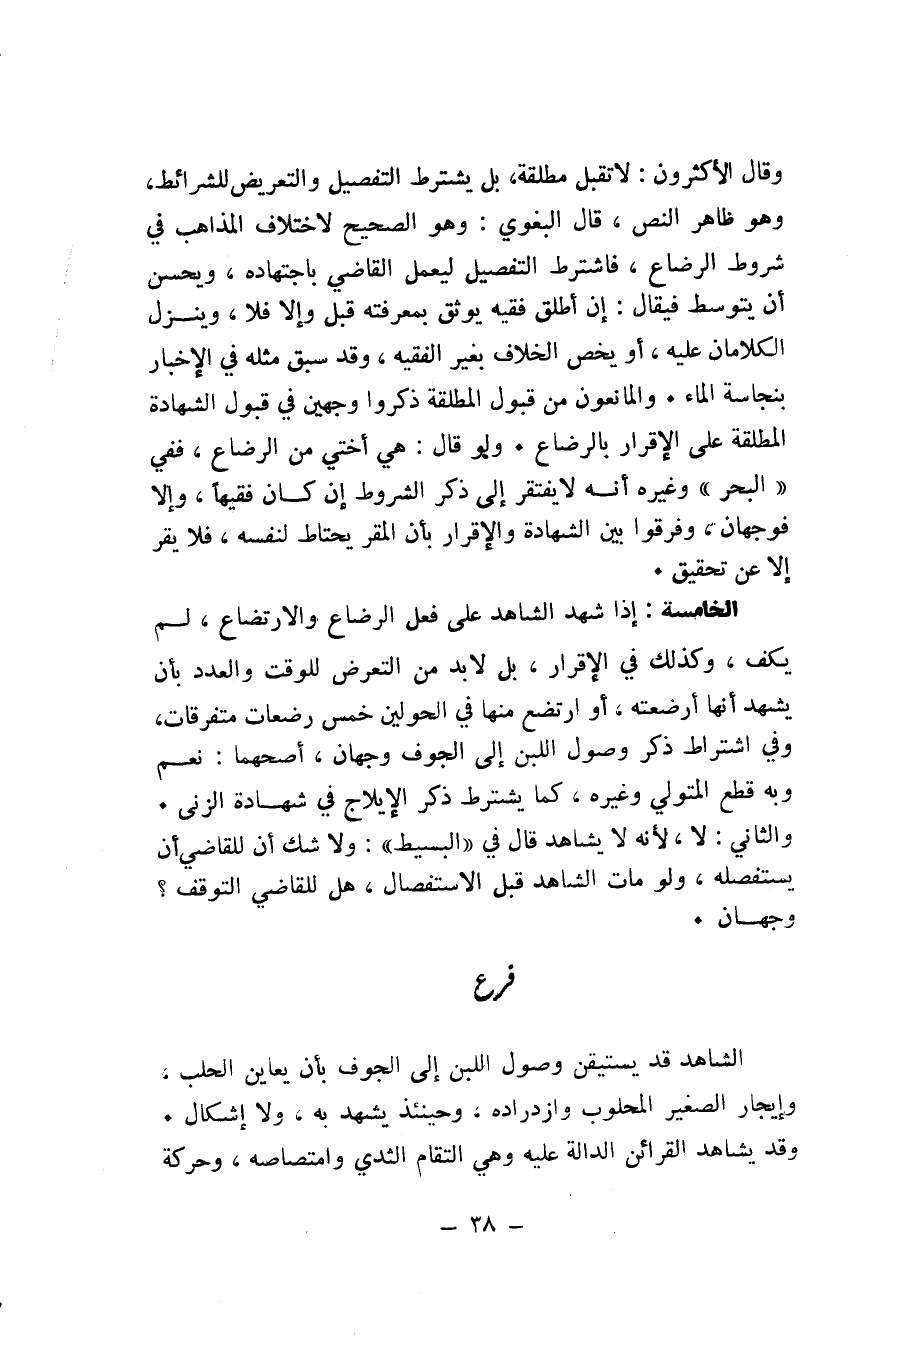 وقال الأكثرون : لاتقبل مطلقة، بل يشترط التفصيل والتعريض للشرائط،
وهو ظاهر النص ، قال البغوي : وهو الصحيح لاختلاف المذاهب في
شروط الرضاع ، فاشترط التفصيل ليعمل القاضي باجتهاده ، ويحسن
أن يتوسط فيقال : إن أطلق فقيه يوثق بمعرفته قبل وإلا فلا ، وينـــزل
الكلامان عليه ، أو يخص الخلاف بغير الفقيه ، وقد سبق مثله في الإخبار
بنجاسة الماء . والمانعون من قبول المطلقة ذكروا وجهين في قبول الشهادة
المطلقة على الإقرار بالرضاع . ولو قال : هي أختي من الرضاع ، ففي
« البحر » وغيره أنــه لايفتقر إلى ذكر الشروط إن كــان فقيهاً ، وإلا
فوجهان ، وفرقوا بين الشهادة والإقرار بأن المقر يحتاط لنفسه ، فلا يقر
إلا عن تحقيق .
الخامسة : إذا شهد الشاهد على فعل الرضاع والارتضاع ، لــم
يكف ، وكذلك في الإقرار ، بل لابد من التعرض للوقت والعدد بأن
يشهد أنها أرضعته ، أو ارتضع منها في الحولين خمس رضعات متفرقات،
وفي اشتراط ذكر وصول اللبن إلى الجوف وجهان ، أصحهما : نعــم
وبه قطع المتولي وغيره ، كما يشترط ذكر الإيلاج في شهــادة الزنى .
والثاني : لا ، لأنه لا يشاهد قال في «البسيط» : ولا شك أن للقاضي أن
يستفصله ، ولو مات الشاهد قبل الاستفصال ، هل للقاضي التوقف ؟
وجهــان .
فرع
الشاهد قد يستيقن وصول اللبن إلى الجوف بأن يعاين الحلب ،
وإيجار الصغير المحلوب وازدراده ، وحينئذ يشهد به ، ولا إشكال .
وقد يشاهد القرائن الدالة عليه وهي التقام الثدي وامتصاصه ، وحركة
– ٣٨ –